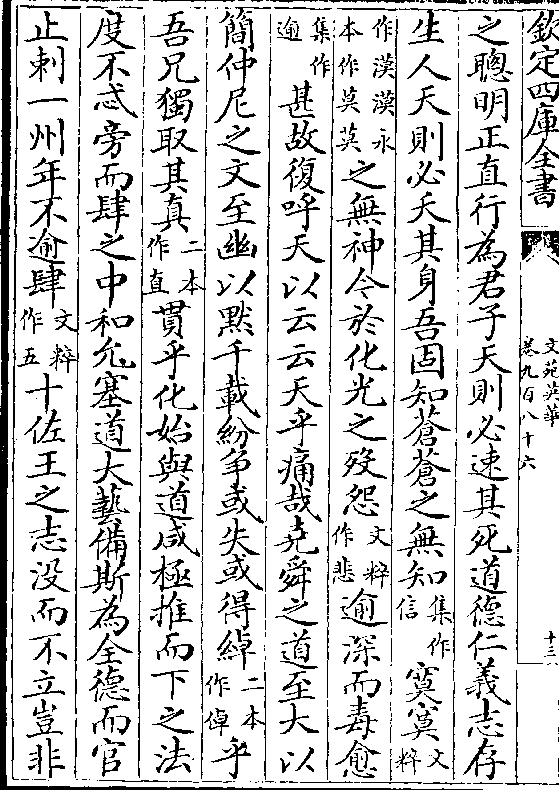 欽定四庫全書
文苑英華
卷九百八十六
十三
之聰明正直行為君子天則必速其死道德仁義志存
生人天則必夭其身吾固知蒼蒼之無知集作信冥冥文粹
作漠漠永本作莫莫之無神今於化光之歿怨文粹作悲逾深而毒愈
集作逾甚故復呼天以云云天乎痛哉堯舜之道至大以
簡仲尼之文至幽以默千載紛爭或失或得綽二本作倬乎
吾兄獨取其真二本作直貫乎化始與道咸極推而下之法
度不忒旁而肆之中和允塞道大藝備斯為全德而官
止刺一州年不逾肆文粹作五十佐王之志没而不立豈非